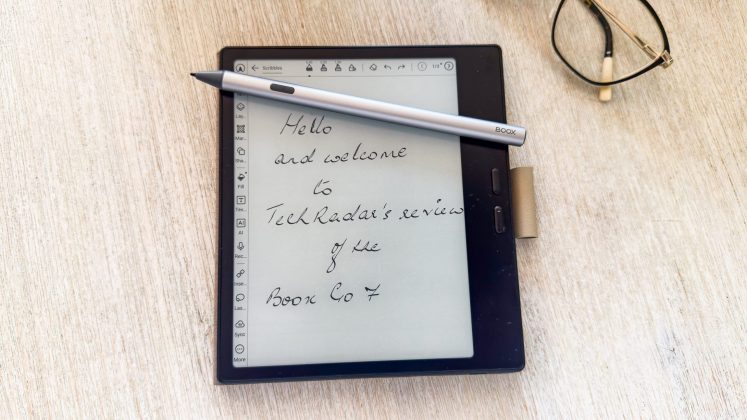 Scribbles
BOOX
Hello
and welcome
to
TechRadar's review
of the
Boox Go 7
Lay...
Mar...
Sha...
Fill
Tex...
AI
Rec...
Inse...
Las...
Sync
More